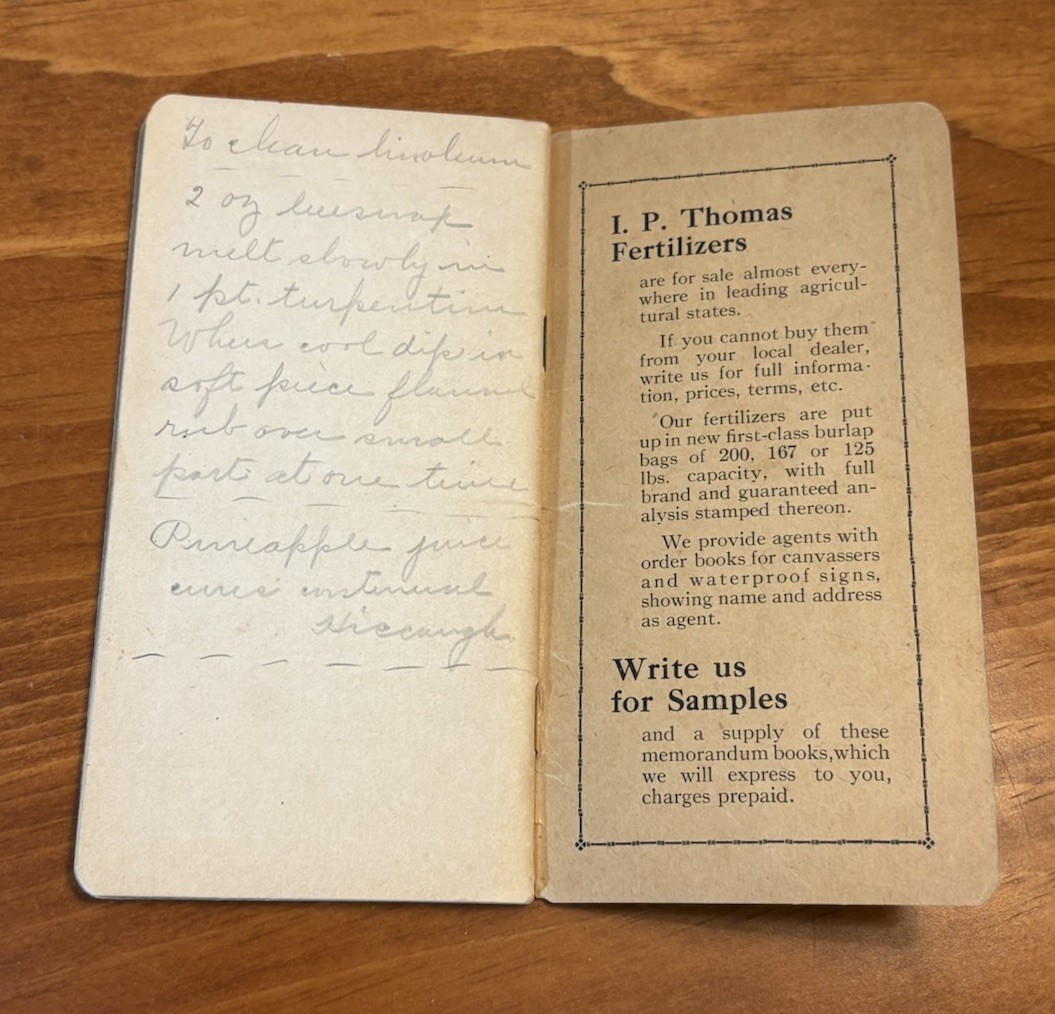 To clean linoleum
2 oz beeswax
melt slowly in
1 pt. turpentine
When cool dip in
soft piece flannel
rub over small
part at one time
Pineapple juice
cures continual
Hiccough
I. P. Thomas
Fertilizers
are for sale almost every-
where in leading agricul-
tural states.
If you cannot buy them
from your local dealer,
write us for full informa-
tion, prices, terms, etc.
Our fertilizers are put
up in new first-class burlap
bags of 200, 167 or 125
lbs. capacity, with full
brand and guaranteed an-
alysis stamped thereon.
We provide agents with
order books for canvassers
and waterproof signs,
showing name and address
as agent.
Write us
for Samples
and a supply of these
memorandum books, which
we will express to you,
charges prepaid.